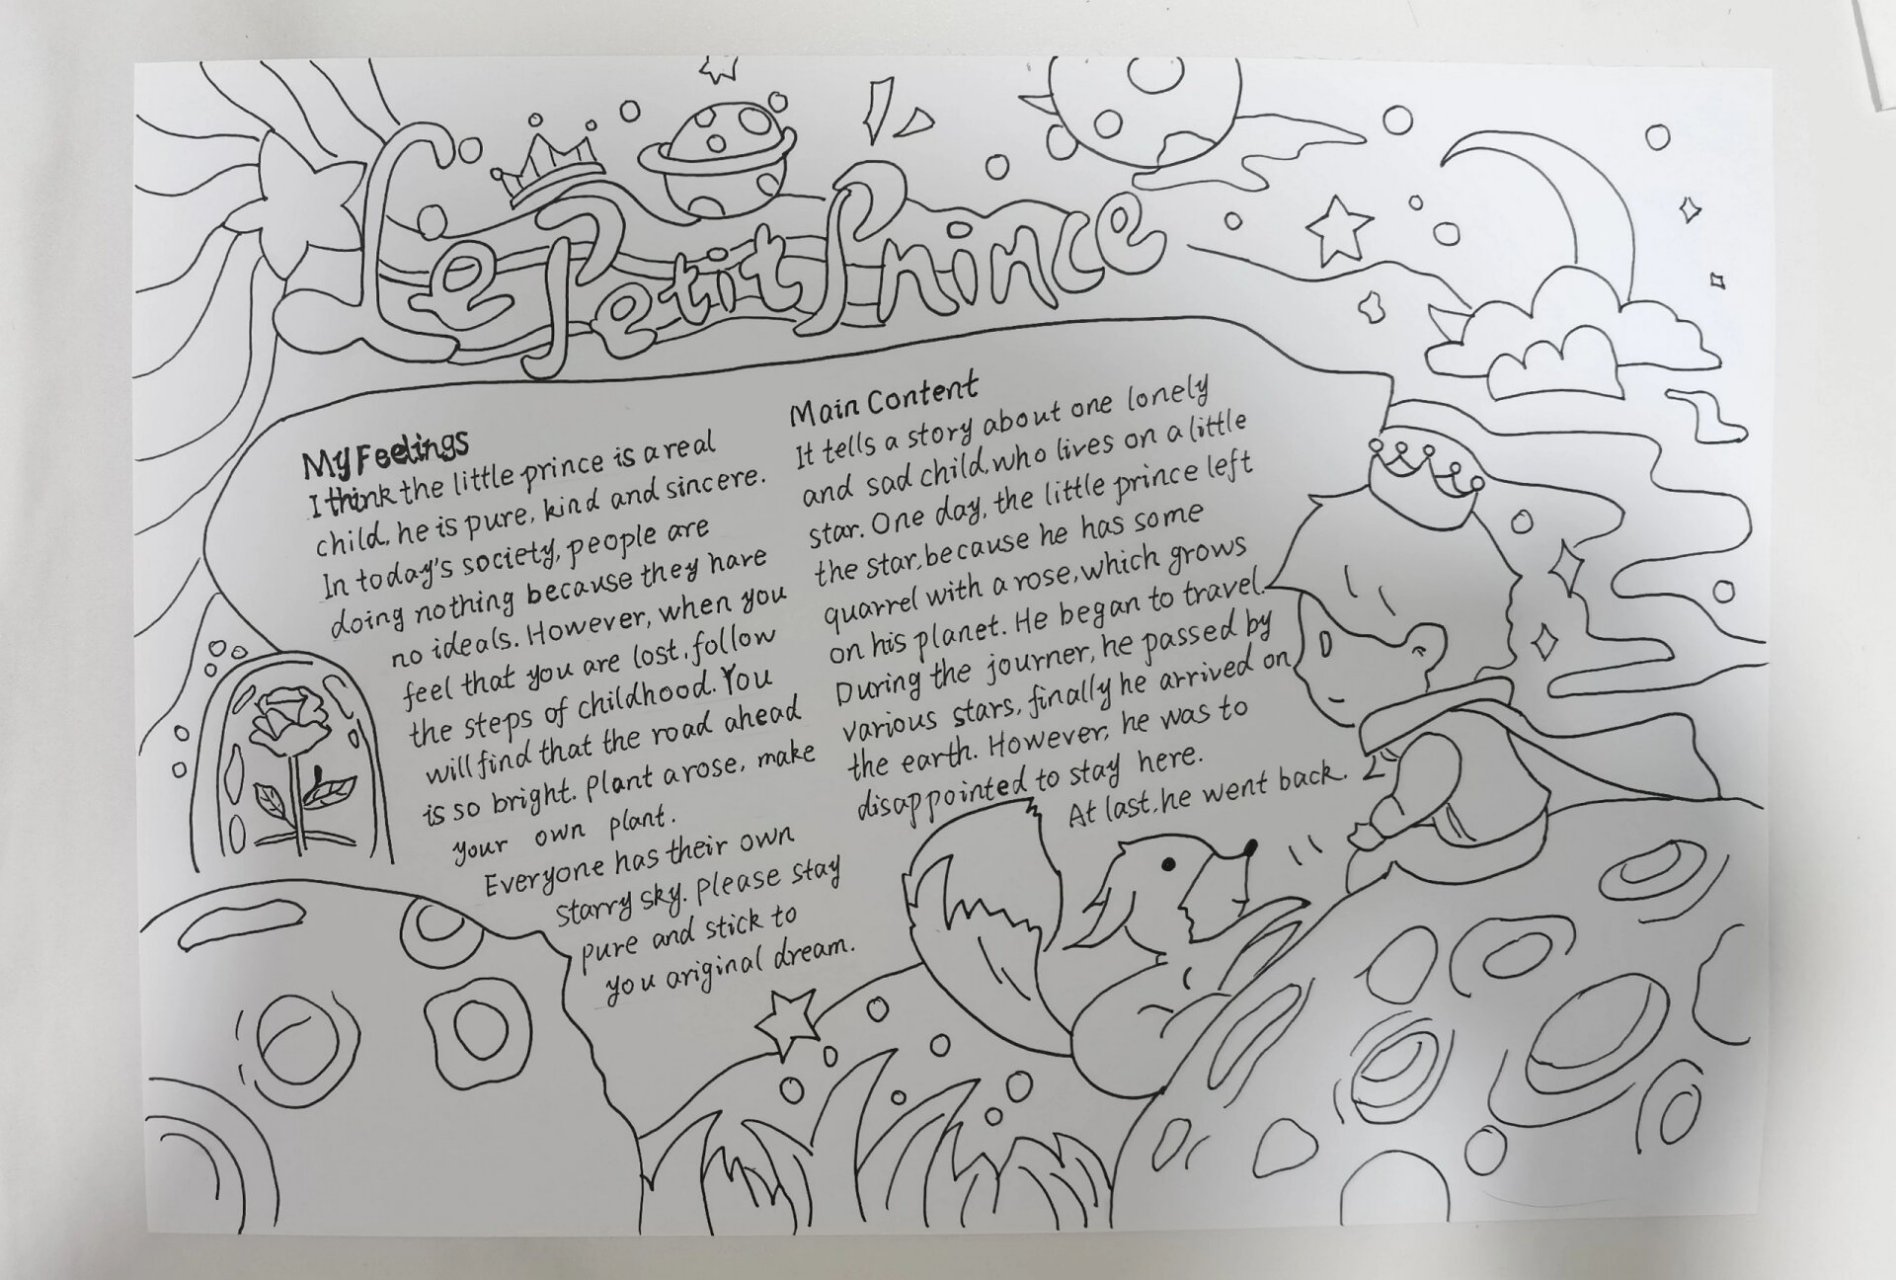 Le Petit Prince
My Feelings
I think the little prince is a real
child, he is pure, kind and sincere.
In today's society, people are
doing nothing because they have
no ideals. However, when you
feel that you are lost, follow
the steps of childhood. You
will find that the road ahead
is so bright. Plant a rose, make
your own plant.
Everyone has their own
starry sky. Please stay
pure and stick to
you original dream.
Main Content
It tells a story about one lonely
and sad child, who lives on a little
star. One day, the little prince left
the star, because he has some
quarrel with a rose, which grows
on his planet. He began to travel.
During the journer, he passed by
various stars, finally he arrived on
the earth. However, he was to
disappointed to stay here.
At last, he went back.